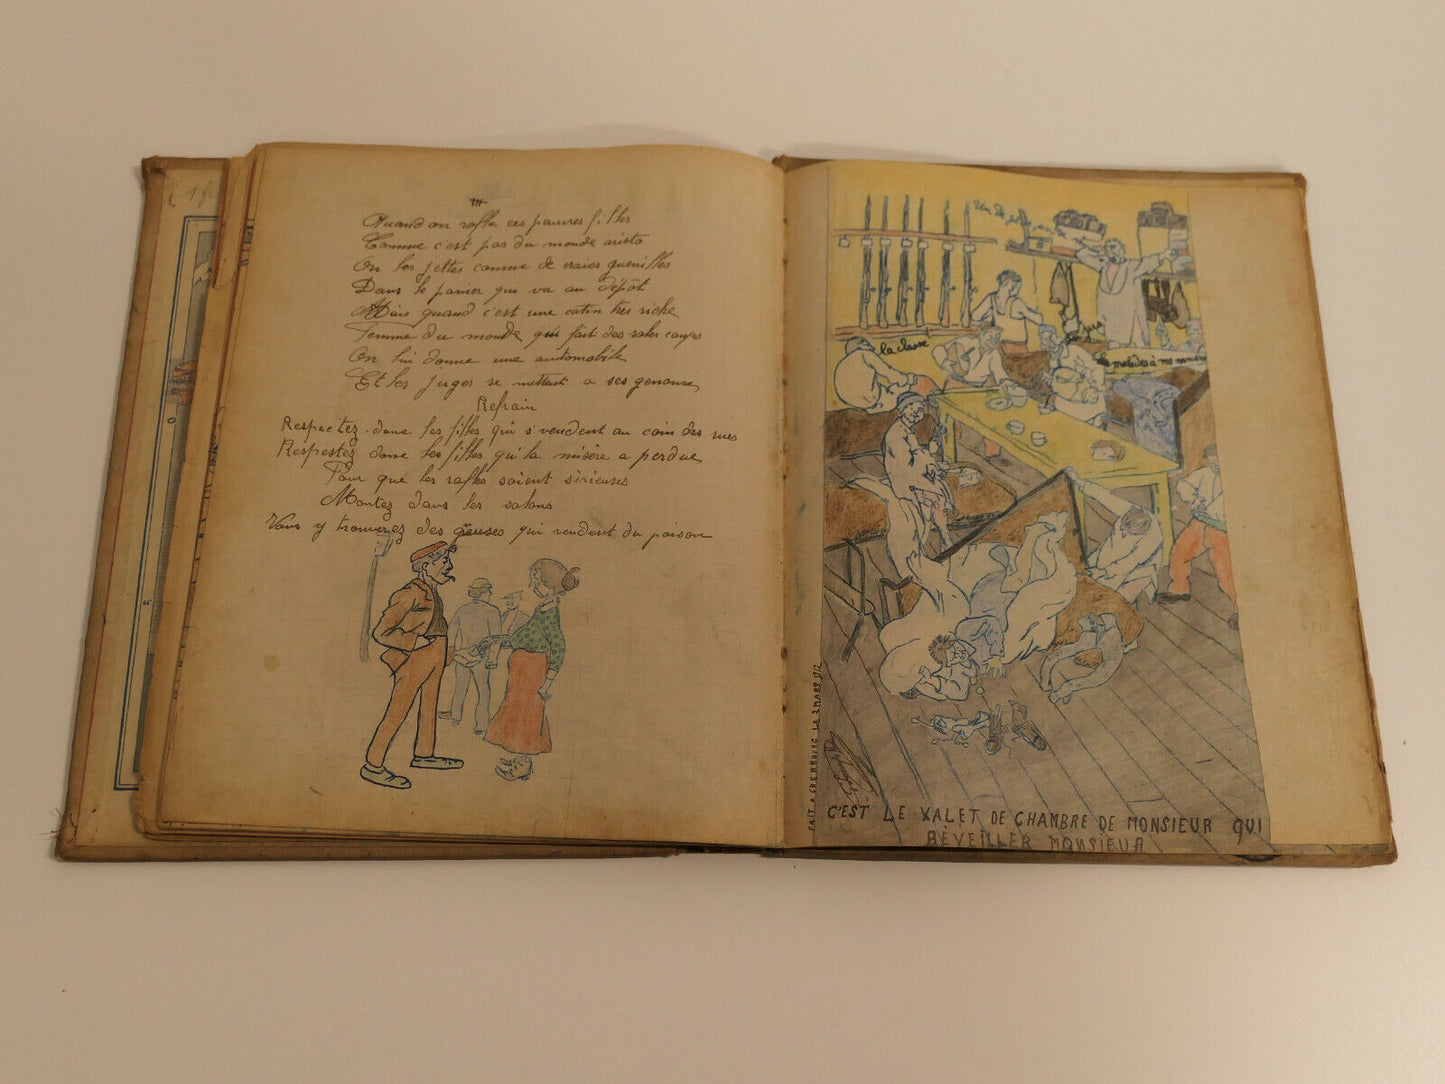 III
Quand on rafle ces pauvres filles
Comme c'est pas du monde aristo
On les jettes comme de vraies guenilles
Dans le panier qui va au dépôt
Mais quand c'est une catin très riche
Femme du monde qui fait des sales coups
On lui donne une automobile
Et les juges se mettent a ses genoux
Refrain
Respectez donc les filles qui s'vendent au coin des rues
Respectez donc les filles qu'la misère a perdue
Pour que les rafles soient sérieuses
Montez dans les salons
Vous y trouverez des gueuses qui vendent du poison
la classe
jus
malades à vos
FAIT A CHERBOURG LE 2 MARS 1912
C'EST LE VALET DE CHAMBRE DE MONSIEUR QUI
RÉVEILLER MONSIEUR